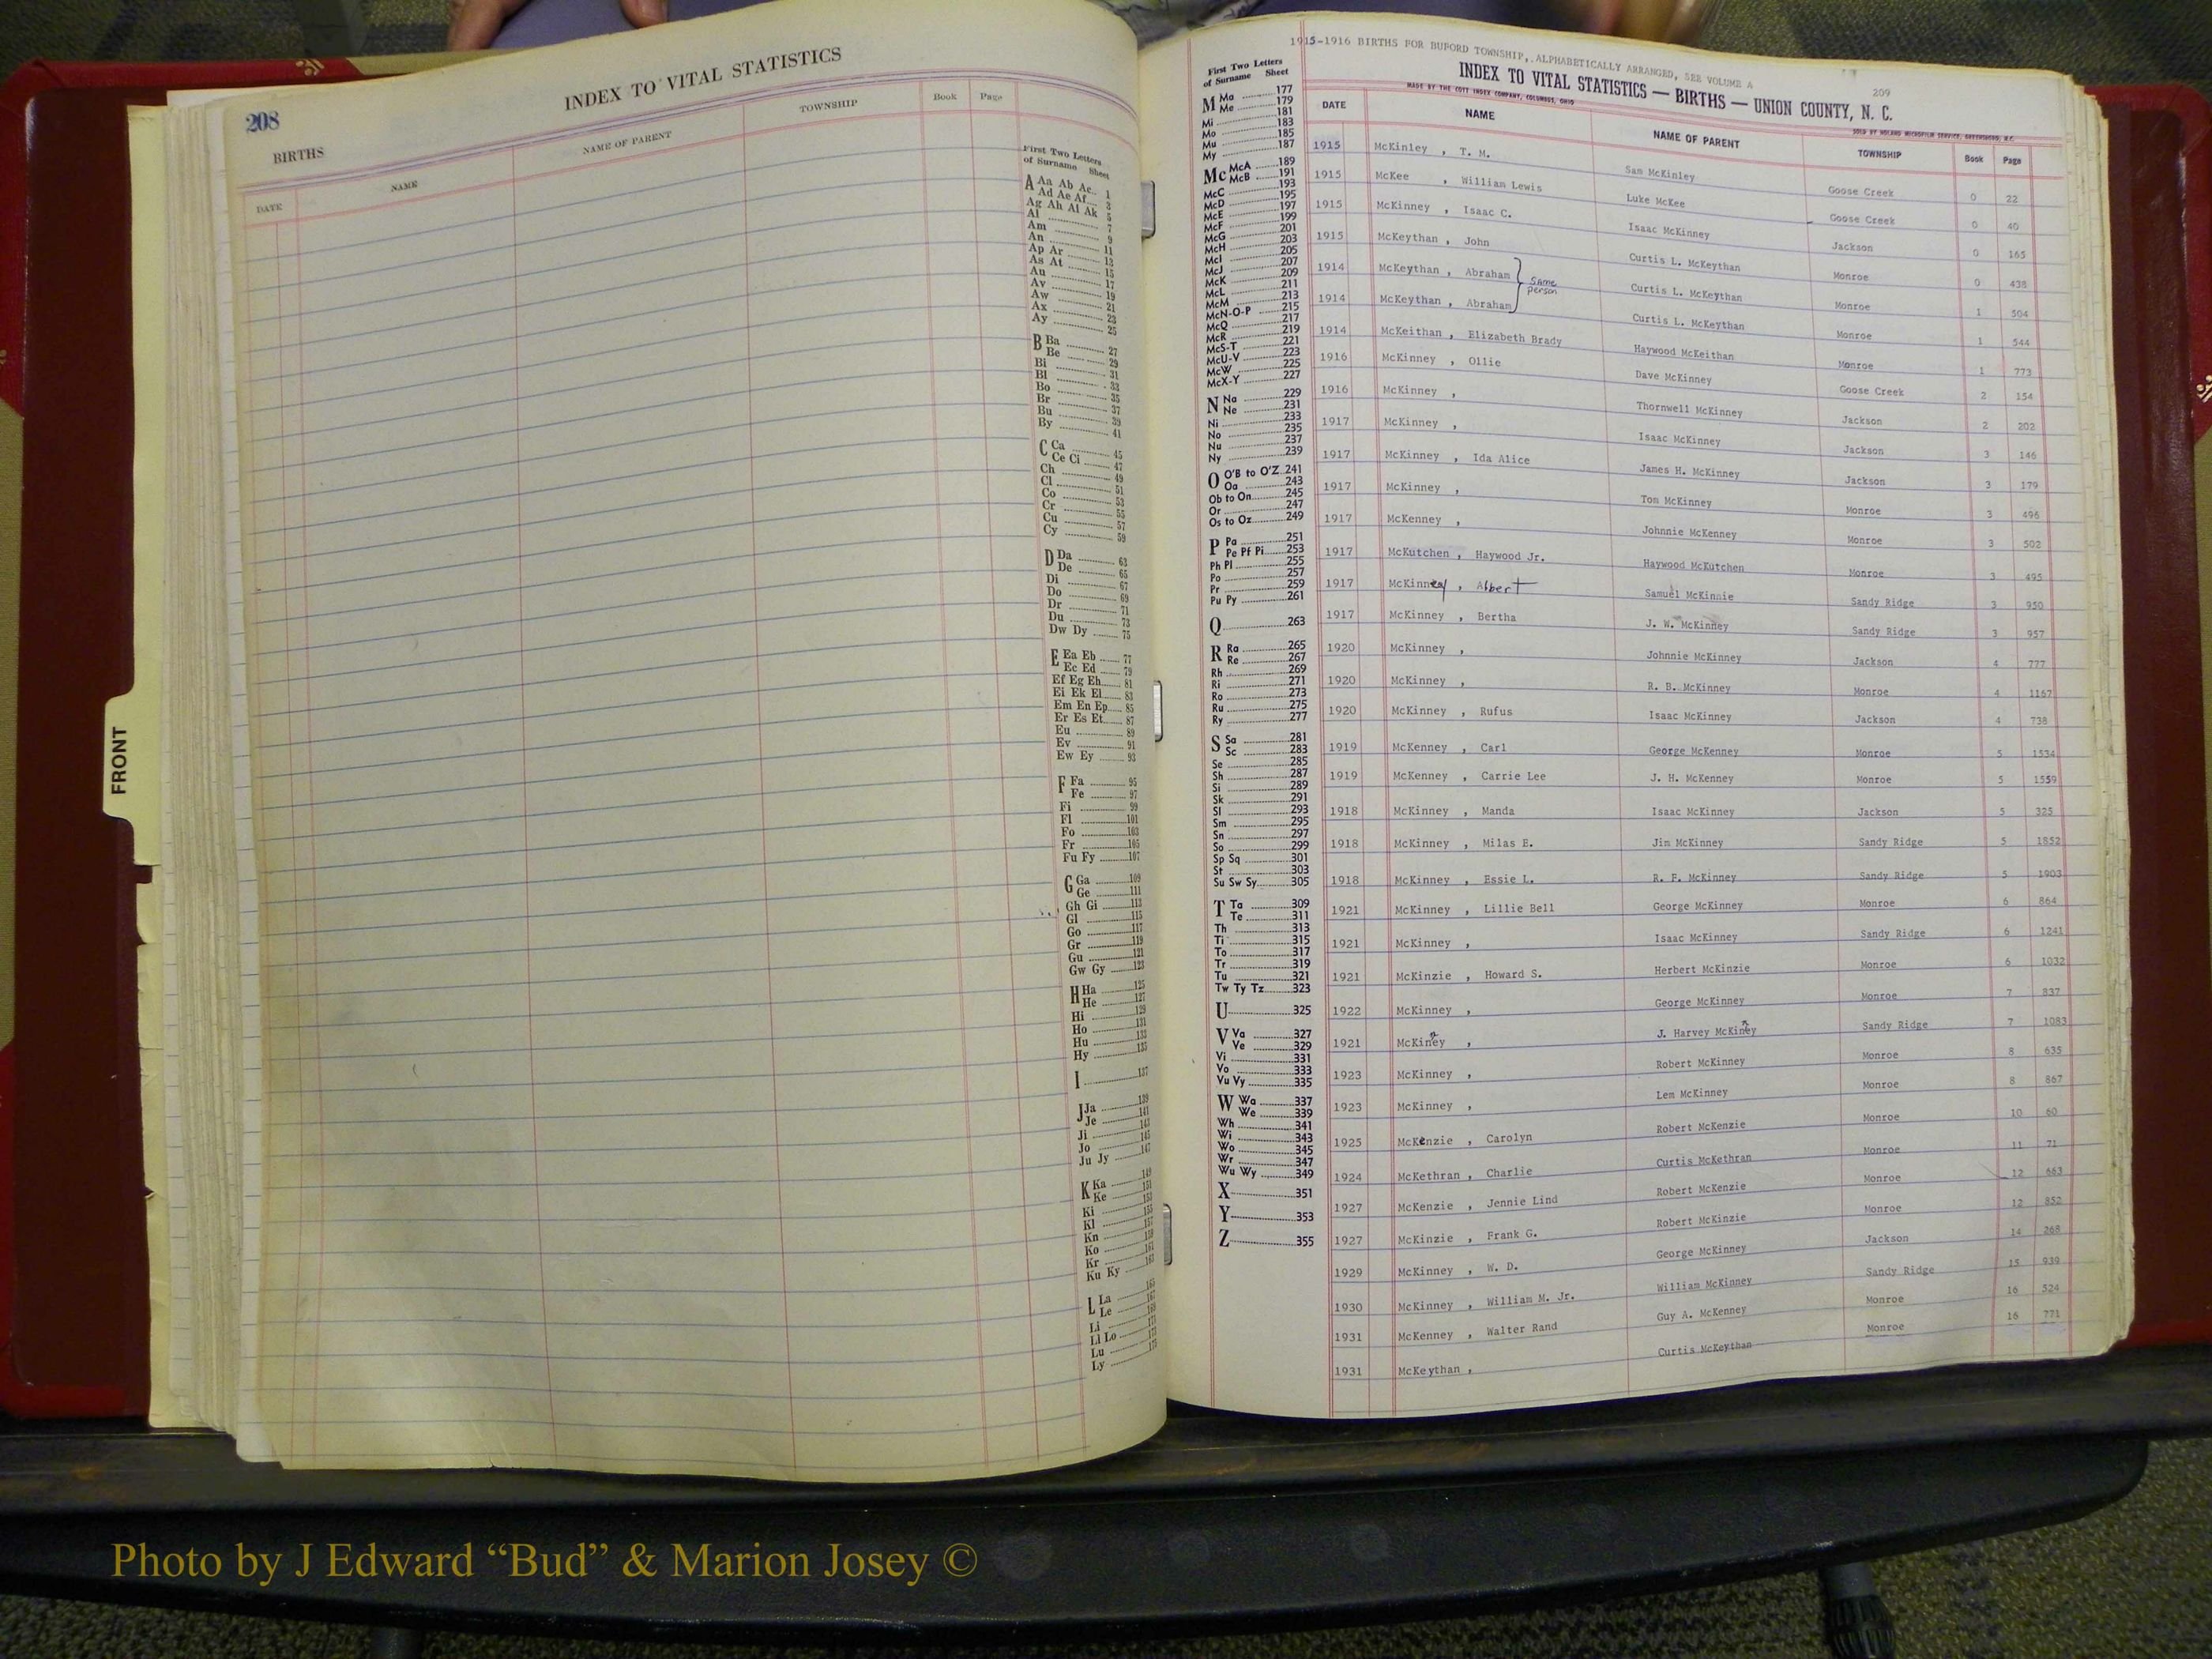 208
INDEX TO VITAL STATISTICS
BIRTHS
DATE NAME NAME OF PARENT TOWNSHIP Book Page
First Two Letters
of Surname Sheet
A Aa Ab Ac 1
Ad Ae Af 3
Ag Ah Ai Ak 5
Al 7
Am 9
An 11
Ap Ar 13
As At 15
Au 17
Av 19
Aw 21
Ax 23
Ay 25
B Ba 27
Be 29
Bi 31
Bl 33
Bo 35
Br 37
Bu 39
By 41
C Ca 45
Ce Ci 47
Ch 49
Cl 51
Co 53
Cr 55
Cu 57
Cy 59
D Da 63
De 65
Di 67
Do 69
Dr 71
Du 73
Dw Dy 75
E Ea Eb 77
Ec Ed 79
Ef Eg Eh 81
Ei Ek El 83
Em En Ep 85
Er Es Et 87
Eu 89
Ev 91
Ew Ey 93
F Fa 95
Fe 97
Fi 99
Fl 101
Fo 103
Fr 105
Fu Fy 107
G Ga 109
Ge 111
Gh Gi 113
Gl 115
Go 117
Gr 119
Gu 121
Gw Gy 123
H Ha 125
He 127
Hi 129
Ho 131
Hu 133
Hy 135
I 137
J Ja 139
Je 141
Ji 143
Jo 145
Ju Jy 147
K Ka 149
Ke 151
Ki 153
Kl 155
Kn 157
Ko 159
Kr 161
Ku Ky 163
L La 165
Le 167
Li 169
Ll Lo 171
Lu 173
Ly 175
FRONT
1915-1916 BIRTHS FOR BUFORD TOWNSHIP, ALPHABETICALLY ARRANGED, SEE VOLUME A
209
INDEX TO VITAL STATISTICS — BIRTHS — UNION COUNTY, N. C.
MADE BY THE COTT INDEX COMPANY, COLUMBUS, OHIO
SOLD BY NOLAND MICROFILM SERVICE, GREENSBORO, N.C.
First Two Letters
of Surname Sheet
M Ma 177
Me 179
Mi 181
Mo 183
Mu 185
My 187
Mc McA 189
McB 191
McC 193
McD 195
McE 197
McF 199
McG 201
McH 203
McI 205
McJ 207
McK 209
McL 211
McM 213
McN-O-P 215
McQ 217
McR 219
McS-T 221
McU-V 223
McW 225
McX-Y 227
N Na 229
Ne 231
Ni 233
No 235
Nu 237
Ny 239
O O'B to O'Z 241
Oa 243
Ob to On 245
Or 247
Os to Oz 249
P Pa 251
Pe Pf Pi 253
Ph Pl 255
Po 257
Pr 259
Pu Py 261
Q 263
R Ra 265
Re 267
Rh 269
Ri 271
Ro 273
Ru 275
Ry 277
S Sa 281
Sc 283
Se 285
Sh 287
Si 289
Sk 291
Sl 293
Sm 295
Sn 297
So 299
Sp Sq 301
St 303
Su Sw Sy 305
T Ta 309
Te 311
Th 313
Ti 315
To 317
Tr 319
Tu 321
Tw Ty Tz 323
U 325
V Va 327
Ve 329
Vi 331
Vo 333
Vu Vy 335
W Wa 337
We 339
Wh 341
Wi 343
Wo 345
Wr 347
Wu Wy 349
X 351
Y 353
Z 355
DATE NAME NAME OF PARENT TOWNSHIP Book Page
1915 McKinley , T. M. Sam McKinley Goose Creek 0 22
1915 McKee , William Lewis Luke McKee Goose Creek 0 40
1915 McKinney , Isaac C. Isaac McKinney Jackson 0 165
1915 McKeythan , John Curtis L. McKeythan Monroe 0 438
1914 McKeythan , Abraham Curtis L. McKeythan Monroe 1 504
same person
1914 McKeythan , Abraham Curtis L. McKeythan Monroe 1 544
1914 McKeithan , Elizabeth Brady Haywood McKeithan Monroe 1 773
1916 McKinney , Ollie Dave McKinney Goose Creek 2 154
1916 McKinney , Thornwell McKinney Jackson 2 202
1917 McKinney , Isaac McKinney Jackson 3 146
1917 McKinney , Ida Alice James H. McKinney Jackson 3 179
1917 McKinney , Tom McKinney Monroe 3 496
1917 McKenney , Johnnie McKenney Monroe 3 502
1917 McKutchen , Haywood Jr. Haywood McKutchen Monroe 3 495
1917 McKinney , Albert Samuel McKinnie Sandy Ridge 3 950
1917 McKinney , Bertha J. W. McKinney Sandy Ridge 3 957
1920 McKinney , Johnnie McKinney Jackson 4 777
1920 McKinney , R. B. McKinney Monroe 4 1167
1920 McKinney , Rufus Isaac McKinney Jackson 4 738
1919 McKenney , Carl George McKenney Monroe 5 1534
1919 McKenney , Carrie Lee J. H. McKenney Monroe 5 1559
1918 McKinney , Manda Isaac McKinney Jackson 5 325
1918 McKinney , Milas E. Jim McKinney Sandy Ridge 5 1852
1918 McKinney , Essie L. R. F. McKinney Sandy Ridge 5 1903
1921 McKinney , Lillie Bell George McKinney Monroe 6 864
1921 McKinney , Isaac McKinney Sandy Ridge 6 1241
1921 McKinzie , Howard S. Herbert McKinzie Monroe 6 1032
1922 McKinney , George McKinney Monroe 7 837
1921 McKinney , J. Harvey McKinney Sandy Ridge 7 1083
1923 McKinney , Robert McKinney Monroe 8 635
1923 McKinney , Lem McKinney Monroe 8 867
1925 McKenzie , Carolyn Robert McKenzie Monroe 10 60
1924 McKethran , Charlie Curtis McKethran Monroe 11 71
1927 McKenzie , Jennie Lind Robert McKenzie Monroe 12 663
1927 McKinzie , Frank G. Robert McKinzie Monroe 12 852
1929 McKinney , W. D. George McKinney Jackson 14 268
1930 McKinney , William M. Jr. William McKinney Sandy Ridge 15 939
1931 McKenney , Walter Rand Guy A. McKenney Monroe 16 524
1931 McKeythan , Curtis McKeythan Monroe 16 771
Photo by J Edward “Bud” & Marion Josey ©